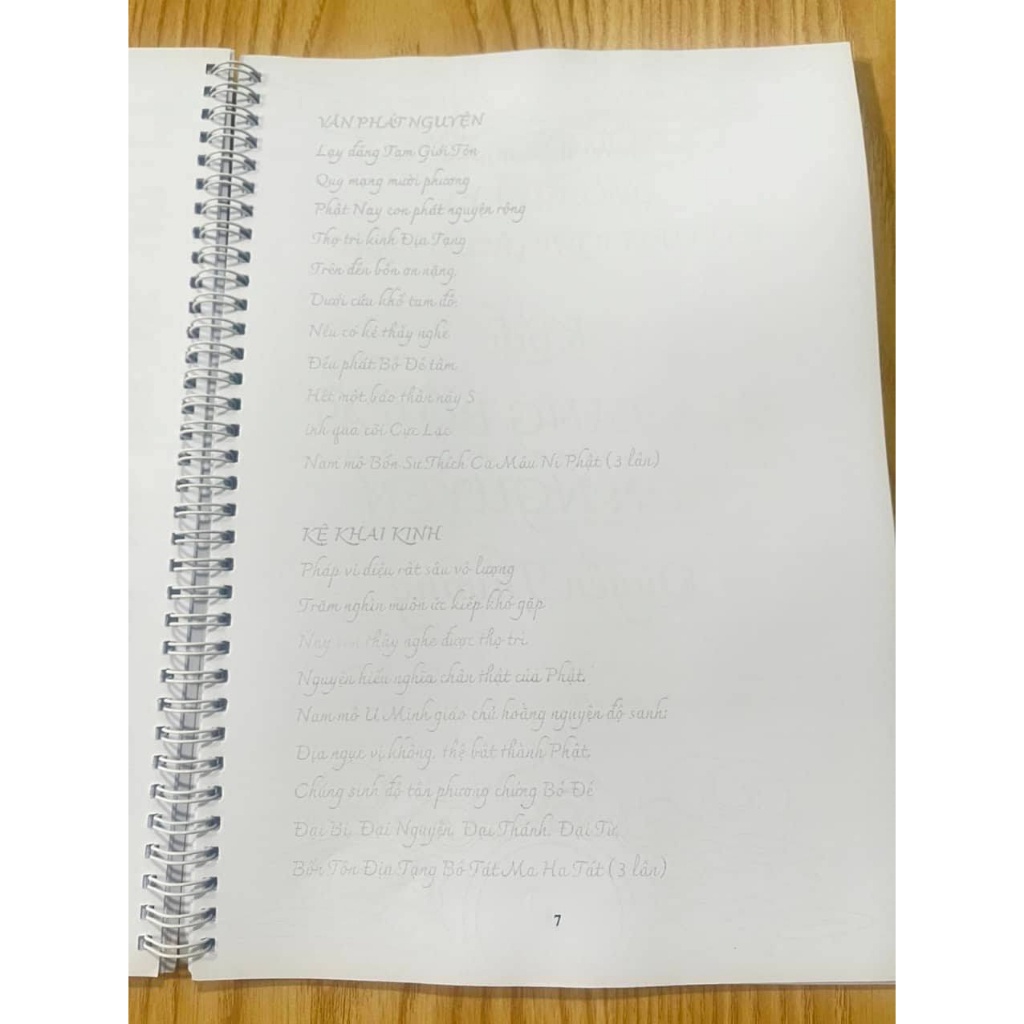 VĂN PHÁT NGUYỆN
Lạy đấng Tam Giới Tôn
Quy mạng mười phương
Phật Nay con phát nguyện rộng
Thọ trì kinh Địa Tạng
Trên đền bốn ơn nặng,
Dưới cứu khổ tam đồ.
Nếu có kẻ thấy nghe
Đều phát Bồ Đề tâm
Hết một báo thân này S
inh qua cõi Cực Lạc
Nam mô Bổn Sư Thích Ca Mâu Ni Phật (3 lần)
KỆ KHAI KINH
Pháp vi diệu rất sâu vô lượng
Trăm nghìn muôn ức kiếp khó gặp
Nay con thấy nghe được thọ trì
Nguyện hiểu nghĩa chân thật của Phật.
Nam mô U Minh giáo chủ hoằng nguyện độ sanh:
Địa ngục vị không, thệ bất thành Phật.
Chúng sinh độ tận phương chứng Bồ Đề
Đại Bi, Đại Nguyện, Đại Thánh, Đại Từ,
Bổn Tôn Địa Tạng Bồ Tát Ma Ha Tát (3 lần)
7